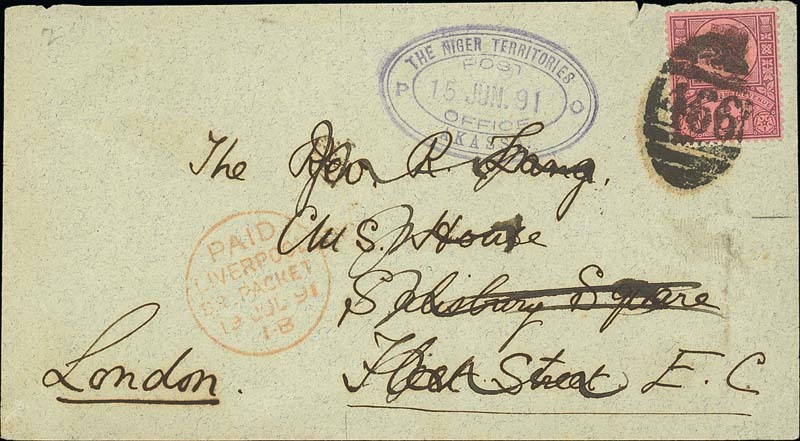 THE NIGER TERRITORIES
POST
P 15 JUN. 91 O
OFFICE
AKASSA
466
The Rev. R. Lang,
C M S. House
Salisbury Square
Fleet Street E. C.
London.
PAID
LIVERPOOL
BR. PACKET
19 JUL 91
1-B